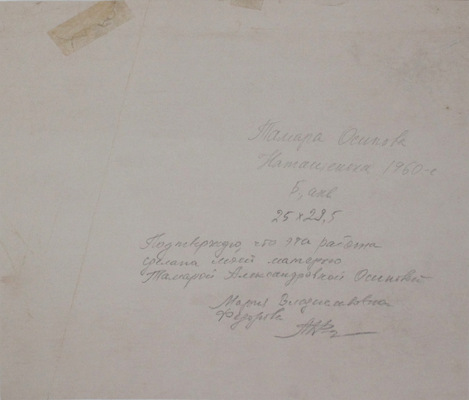 Тамара Осипова
Наташенька 1960-е
Б, акв
25 х 29,5
Подтверждаю, что эта работа
сделана моей матерью
Тамарой Александровной Осиповой
Мария Владиславовна
Федорова